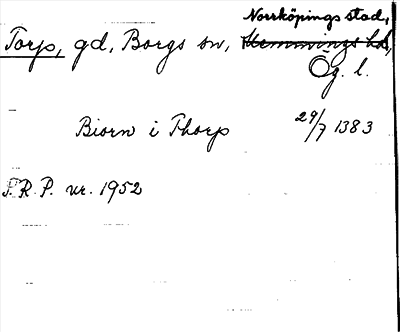 Norrköpings stad,
Torp, gd, Borgs sn, Memmings hd,
Ög. l.
Biorn i Thorp 29/7 1383
S.R.P. nr. 1952